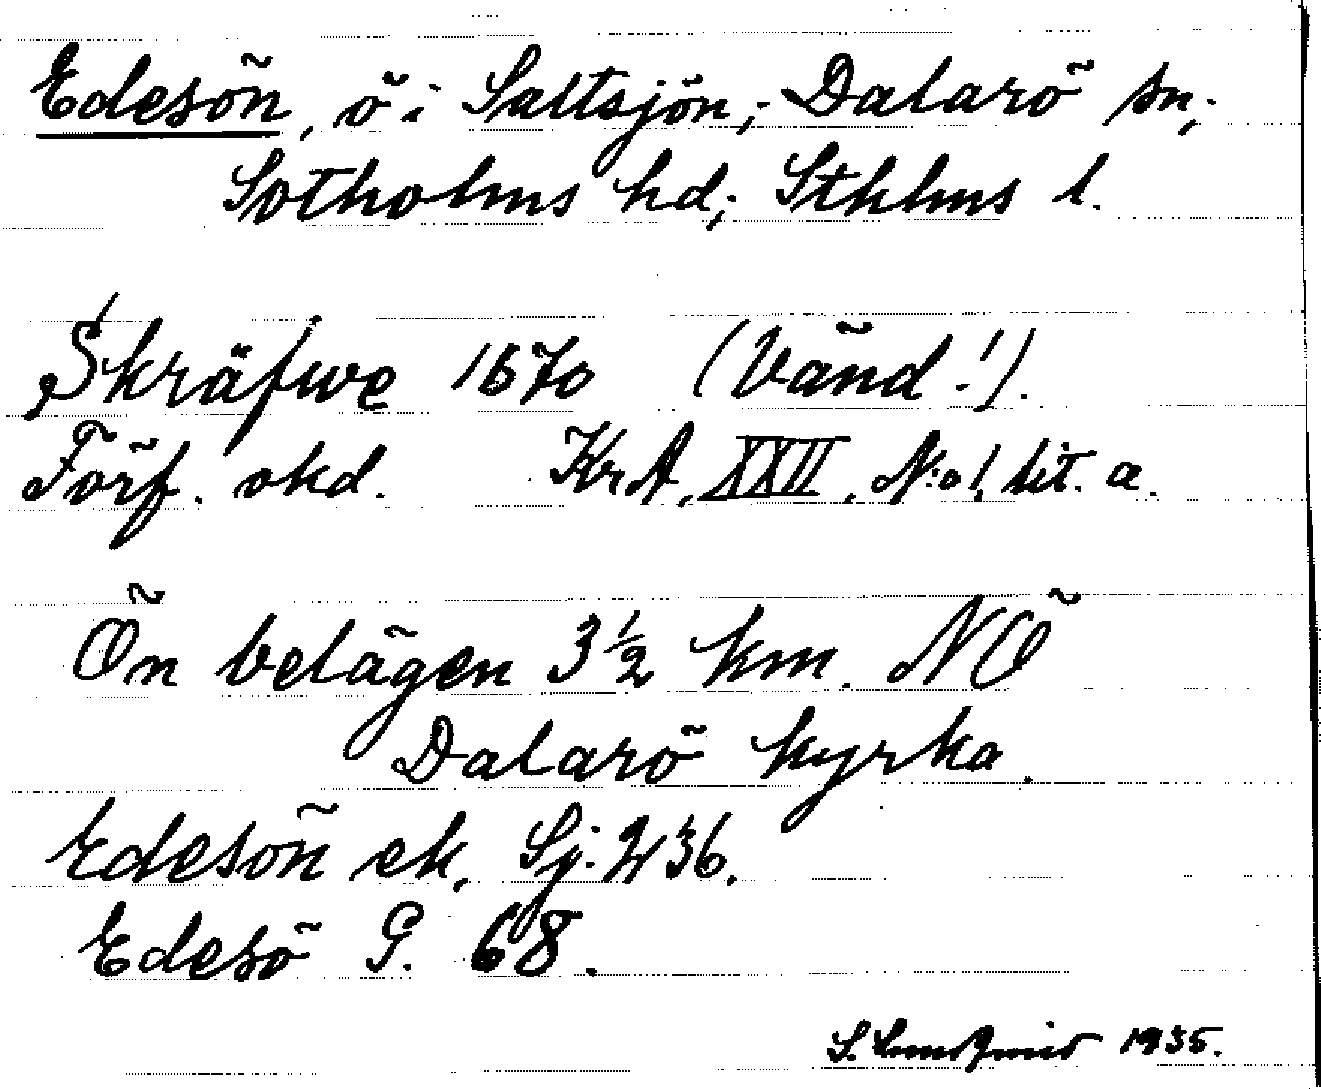 Edesön, ö i Saltsjön; Dalarö sn;
Sotholms hd; Sthlms l.
Skräfwe 1670 (Vänd!).
Förf. okd. Kr.A. XXII. N:o 1, lit. a.
Ön belägen 3½ km. NÖ
Dalarö kyrka.
Edesön ek. Sj. 236.
Edesö G. 68.
S. 1935.